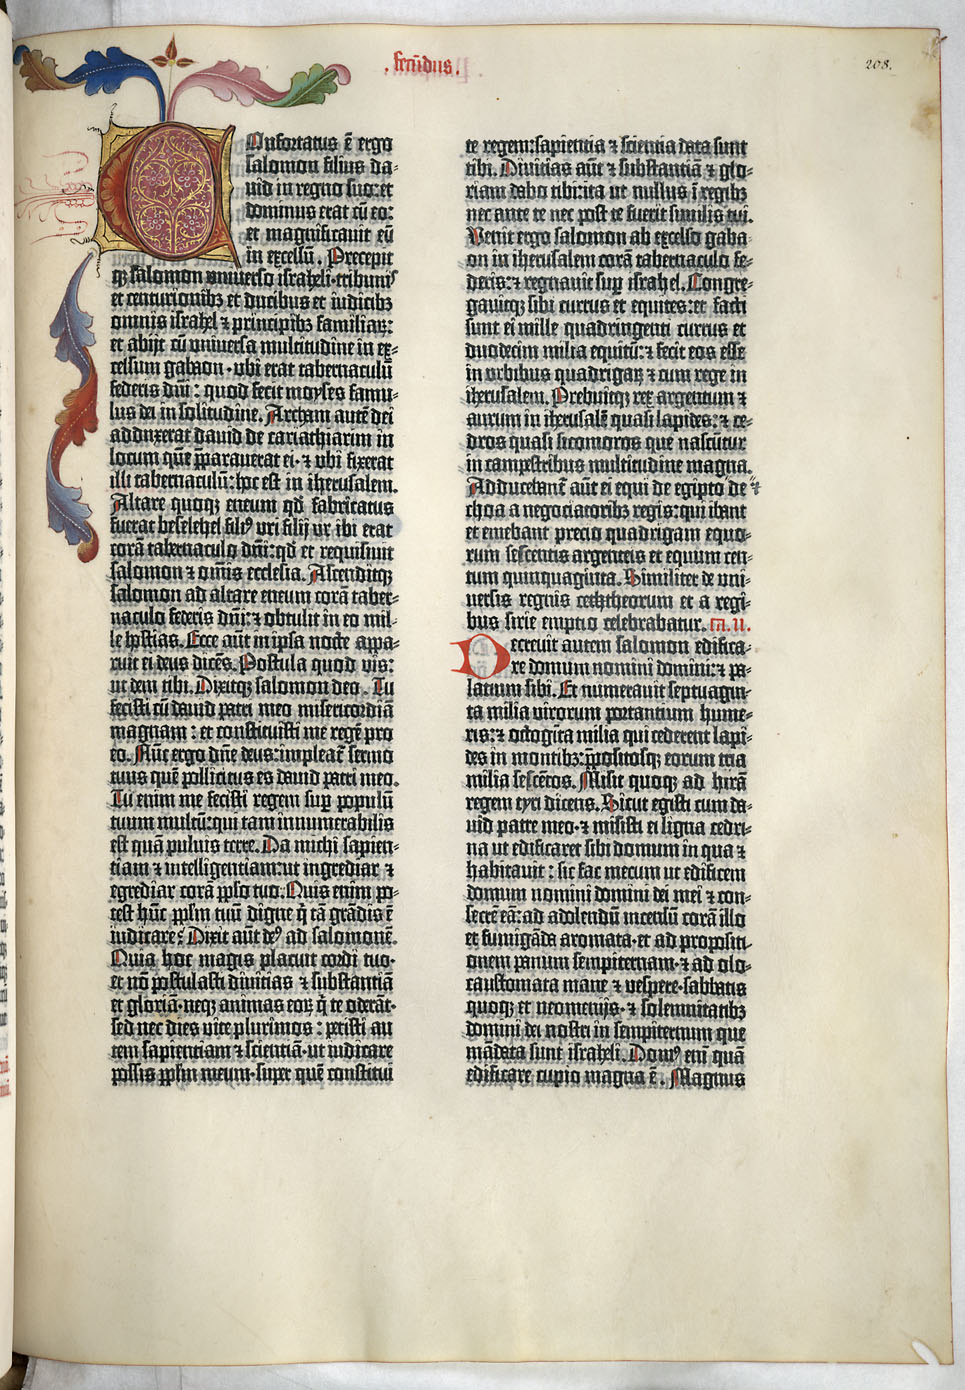 .secūdus.
208.
Confortatus ē ergo
salomon filius da-
uid in regno suo: et
dominus erat cū eo:
et magnificauit eū
in excelsū. Precepit
qꝫ salomon uniuerso israheli · tribunis
et centurionibꝫ et ducibus et iudicibꝫ
omnis israhel ⁊ principibꝫ familiaꝝ:
et abijt cū vniuersa multitudine in ex-
celsum gabaon · vbi erat tabernaculū
federis dn̄i: quod fecit moyses famu-
lus dei in solitudine. Archam autē dei
adduxerat dauid de cariathiarim in
locum quē p̄parauerat ei · ⁊ vbi fixerat
illi tabernaculū: hoc est in iherusalem.
Altare quoqꝫ eneum qd̄ fabricatus
fuerat beselehel filiꝰ vri filij vr ibi erat
corā tabernaculo dn̄i: qd̄ et requisiuit
salomon ⁊ om̄is ecclesia. Ascenditqꝫ
salomon ad altare eneum corā taber-
naculo federis dn̄i: ⁊ obtulit in eo mil-
le hostias. Ecce aūt in ipsa nocte appa-
ruit ei deus dicēs. Postula quod vis:
ut dem tibi. Dixitqꝫ salomon deo. Tu
fecisti cū dauid patri meo misericordiā
magnam: et constituisti me regē pro
eo. Nūc ergo dn̄e deus: impleat᷑ sermo
tuus quē pollicitus es dauid patri meo.
Tu enim me fecisti regem suꝑ populū
tuum multū: qui tam innumerabilis
est quā puluis terre. Da michi sapien-
tiam ⁊ intelligentiam: ut ingrediar ⁊
egrediar corā pp̄so tuo. Quis enim po-
test hūc pplm̄ tuū digne q̄ tā grādis ē
iudicare? Dixit aūt deꝰ ad salomonē.
Quia hoc magis placuit cordi tuo ·
et nō postulasti diuitias ⁊ substantiā
et gloriā · neqꝫ animas eoꝝ q̄ te oderāt ·
sed nec dies vite plurimos: petisti au
tem sapientiam ⁊ scientiā · ut iudicare
possis pplm̄ meum · super quē constitui
te regem: sapientia ⁊ scientia data sunt
tibi. Diuitias aūt ⁊ substantiā ⁊ glo-
riam dabo tibi: ita ut nullus ī regibꝫ
nec ante te nec post te fuerit similis tui.
Venit ergo salomon ab excelso gaba-
on in iherusalem corā tabernaculo fe-
deris: ⁊ regnauit suꝑ israhel. Congre-
gauitqꝫ sibi currus et equites: et facti
sunt ei mille quadringenti currus et
duodecim milia equitū: ⁊ fecit eos esse
in vrbibus quadrigaꝝ ⁊ cum rege in
iherusalem. Prebuitqꝫ rex argentum ⁊
aurum in iherusalē quasi lapides: ⁊ ce-
dros quasi sicomoros que nascūtur
in campestribus multitudine magna.
Adducebant᷑ aūt ei equi de egipto de
choa a negociatoribꝫ regis: qui ibant
et emebant precio quadrigam equo-
rum sescentis argenteis et equum cen-
tum quinquaginta. Similiter de vni-
uersis regnis ceththeorum et a regi-
bus sirie emptio celebrabatur. ca. ii.
Decreuit autem salomon edifica-
re domum nomini domini: ⁊ pa-
latium sibi. Et numerauit septuagin-
ta milia virorum portantium hume-
ris: ⁊ octogīta milia qui cederent lapi-
des in montibꝫ: p̄positosqꝫ eorum tria
milia sescētos. Misit quoqꝫ ad hirā
regem tyri dicens. Sicut egisti cum da-
uid patre meo · ⁊ misisti ei ligna cedri-
na ut edificaret sibi domum in qua ⁊
habitauit: sic fac mecum ut edificem
domum nomini domini dei mei ⁊ con-
secrē eā: ad adolendū incensū corā illo
et fumigāda aromata · et ad propositi-
onem panum sempiternam · ⁊ ad olo-
caustomata mane ⁊ vespere · sabbatis
quoqꝫ et neomenijs · ⁊ solennitatibꝫ
domini dei nostri in sempiternum que
mādata sunt israheli. Domꝰ eni quā
edificare cupio magna ē. Magnus